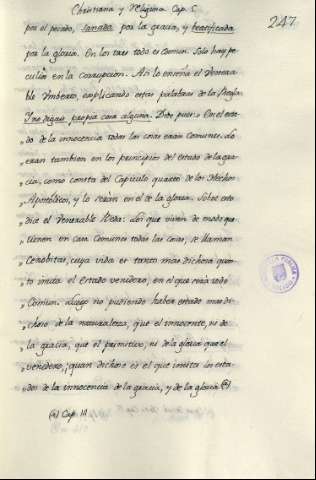 Christiana y Religiosa Cap. 5
247
por el pecado, sanada por la gracia, y beatificada
por la gloria. En los tres todo es comun. Solo hay pe-
culio en la corrupcion. Asi lo enseña el Venera-
ble Umberto, explicando estas palabras de la Regla
Y no digais propia cosa alguna. Dize pues: En el esta-
do de la innocencia todas las cosas eran comunes. Lo
eran tambien en los principios del estado de la gra-
cia, como consta del Capitulo quarto de los Hechos
Apostolicos, y lo serán en el de la gloria. Sobre esto
dice el Venerable Beda: Los que viven de modo que
tienen en Casa comunes todas las cosas, se llaman
Cenobitas, cuya vida es tanto mas dichosa quan-
to imita el Estado venidero, en el que será todo
Comun. Luego no pudiendo haber estado mas di-
choso de la naturaleza, que el innocente, ni de
la gracia, que el primitivo, ni de la gloria que el
venidero, ¡quan dichoso es el que imita los esta-
dos de la innocencia de la gracia, y de la gloria! (a)
(a) Cap. III